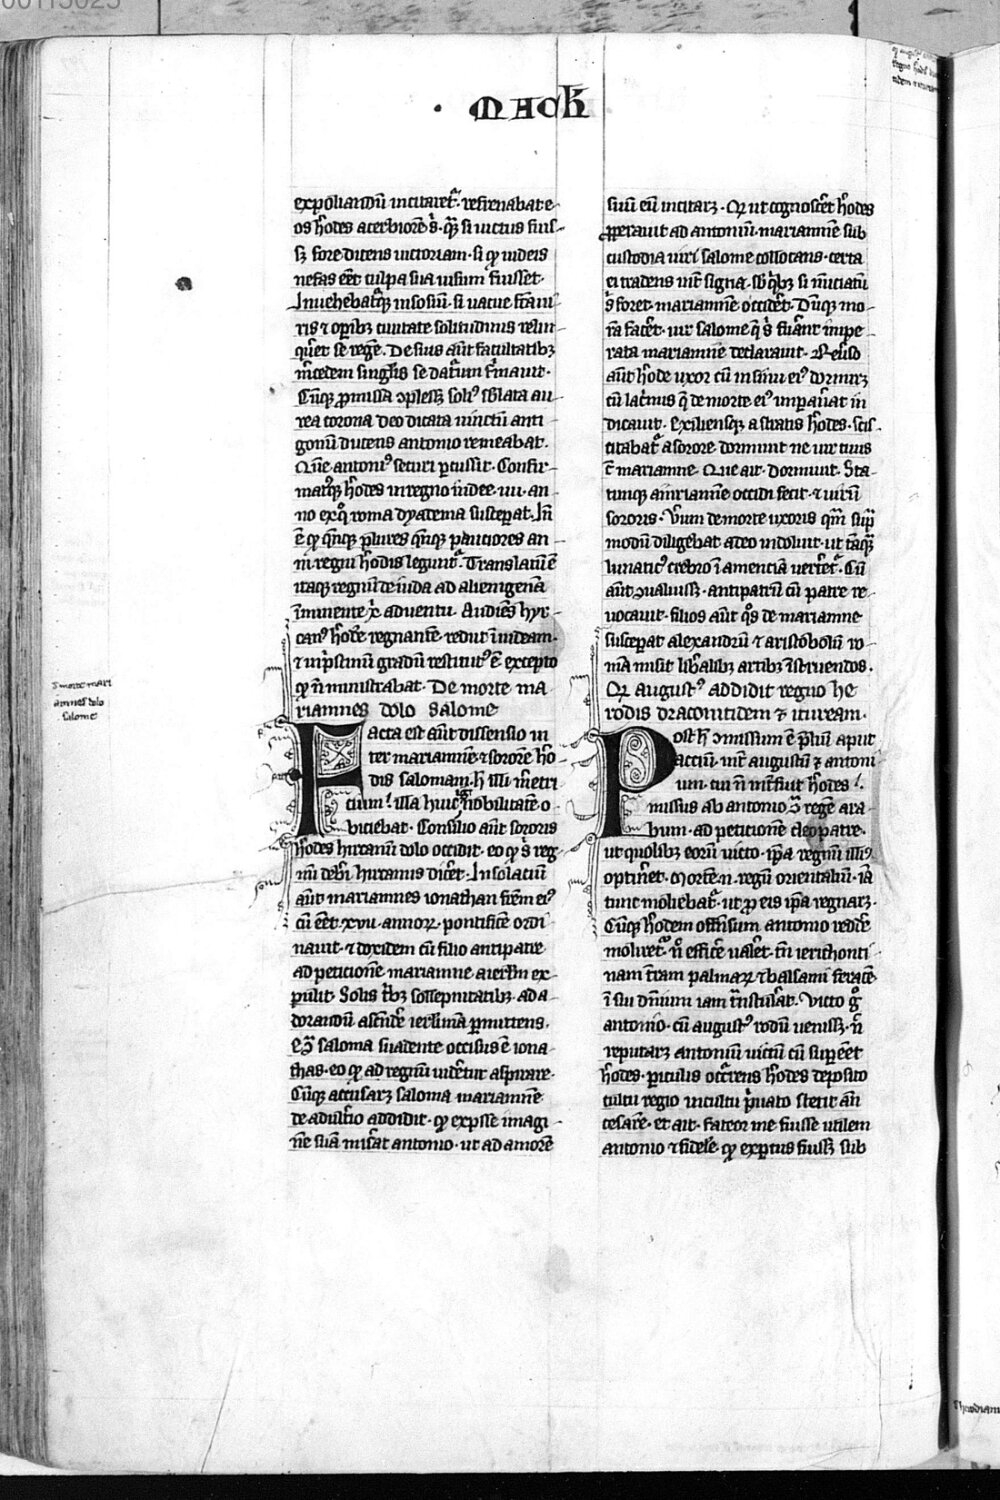 · MACħ
expoliandū incitaret᷑· refrenabat e
os h̾odes acerbiorē s̾· q̾ꝫ si uictus fuis
sꝫ fore dicens uictoriam· si qͦ uideris
nefas eēt culpa sua uisum fuisset·
Inuehebat᷑qꝫ in sosiū· si uacue
ris ⁊ opibꝫ ciuitate solitudinis relin
quēt se regē· De suis aūt facultatibꝫ
m̄cedem singl̄is se datuꝝ firmauit·
Cūqꝫ ꝓmissa ꝯplessꝫ solꝰ sblata au
rea corona deo dicata uinctū anti
gonū ducens antonio remeabat·
Quē antoniꝰ securi ꝑcussit· Confir
matᷣqꝫ h̾odes in regno iudee· uii· an
no ex qͦ rome dyadema susceperat· In̄
ē qͦ qn̄qꝫ plures qn̄qꝫ pauciores an
ni regni h̾odis legunt᷑· Translatū ē
itaqꝫ regnū de iuda ad alienigenā
īminente xͥ aduentu· Audiēs hyr
canꝰ h̾odē regnantē· rediit ī iudeam·
⁊ in p̾stinū gradū restitutꝰ ē excepto
qͦ n̄ ministrabat· De morte ma
riamnes dolo salome
Facta est aūt dissensio in
ter mariamnē ⁊ sororē h̾o
dis salomam· h̾ illi m̾etri
cium· illa huic ignobilitatē o
biciebat· Consilio aūt sororis
h̾odes hircanū dolo occidit· eo qͦ s̾ reg
nū deb̾i hircanus dic̾et· In solaciū
aūt mariamnes ionathan fr̄em eiꝰ
cū eēt xvii· annoꝝ· pontificē ordi
nauit· ⁊ doxidem cū filio antipatre
ad peticionē mariamne a ier̄lm ex
pulit· Solis tͥbꝫ sollepnitatibꝫ· ad a
dorandū ascēde̾ ier̄limā ꝑmittens·
Et̾ saloma suadente occisus ē iona
thas· eo qͦ ad regnū uidēt᷑ aspirare·
Cūqꝫ accusarꝫ saloma mariamnē
de adult̾io addidit· qͦ exp̾sse imagi
nē suā mis̾at antonio· ut ad amorē
suū eū incitarꝫ· Qͦ ut cognosc̾et h̾odes
ꝓperauit ad antoniū· mariamnē sub
custodia uiri salome collocans· certa
ei tradens int̾ signa· sb̾ qͥbꝫ si nūciatū
s̾ foret· mariamnē occid̾et· Dūqꝫ mo
rā fac̾et· uir salome q̄ s̾ fu̾ant impe
rata mariamne declarauit· Reu̾so
aūt h̾ode uxor cū in sinu eiꝰ dormirꝫ
cū lac̾mis q̄ de morte eiꝰ imꝑau̾at in
dicauit· Exiliensqꝫ a stratis h̾odes· scis
citabat᷑ a sorore dormiuit ne uir tuus
c̄ mariamne· Que ait· dormiuit· Sta
timqꝫ mariamnē occidi fecit· ⁊ uirū
sororis· Verum de morte uxoris qm̄ supᷓ
modū diligebat adeo indoluit· ut tāqᷓꝫ
lunaticꝰ crebro ī amencia uert̾et᷑· Cū
aūt ꝯualuissꝫ· antipatrū cū patre re
uocauit· filios aūt qͦs de mariamne
susceperat alexandrū ⁊ aristobolū ro
mā misit lib̾alibꝫ artibꝫ īstruendos·
Qͦ augustꝰ addidit regno he
rodis draconitidem ⁊ ituream·
Post h̾ ꝯmissum ē p̾liū aput
acciū· int̾ augustū ⁊ antoni
um· cui n̄ int̾fuit h̾odes
missus ab antonio ꝯᷓ regē ara
bum· ad peticionē cleopatre·
ut quolibꝫ eorū uicto· ip̄a regnū illiꝰ
optin̾et· Mortē n̄· regū orientaliū· iā
tunc moliebat᷑· ut ꝓ eis ip̄a regnarꝫ·
Cūqꝫ h̾odem offensum antonio redde̾
moliret᷑· nͦ effice̾ ualēt· tn̄ ierichonti
nam tr̄am palmaꝝ ⁊ balsami feracē
ī sui dn̄ium iam tn̄stul̾at· Uicto gͦ
antonio· cū augustꝰ rodū uenissꝫ· ⁊
reputarꝫ antoniū uictū cū sup eēt
h̾odes· periculis occ̾rens h̾odes deposito
cultu regio in cultu pͥuato stetit an̄
cesarē· et ait· fateor me fuisse utilem
antonio ⁊ fidelē· qͦ expertus fuissꝫ sub
De morte mari
amnes dolo
salome